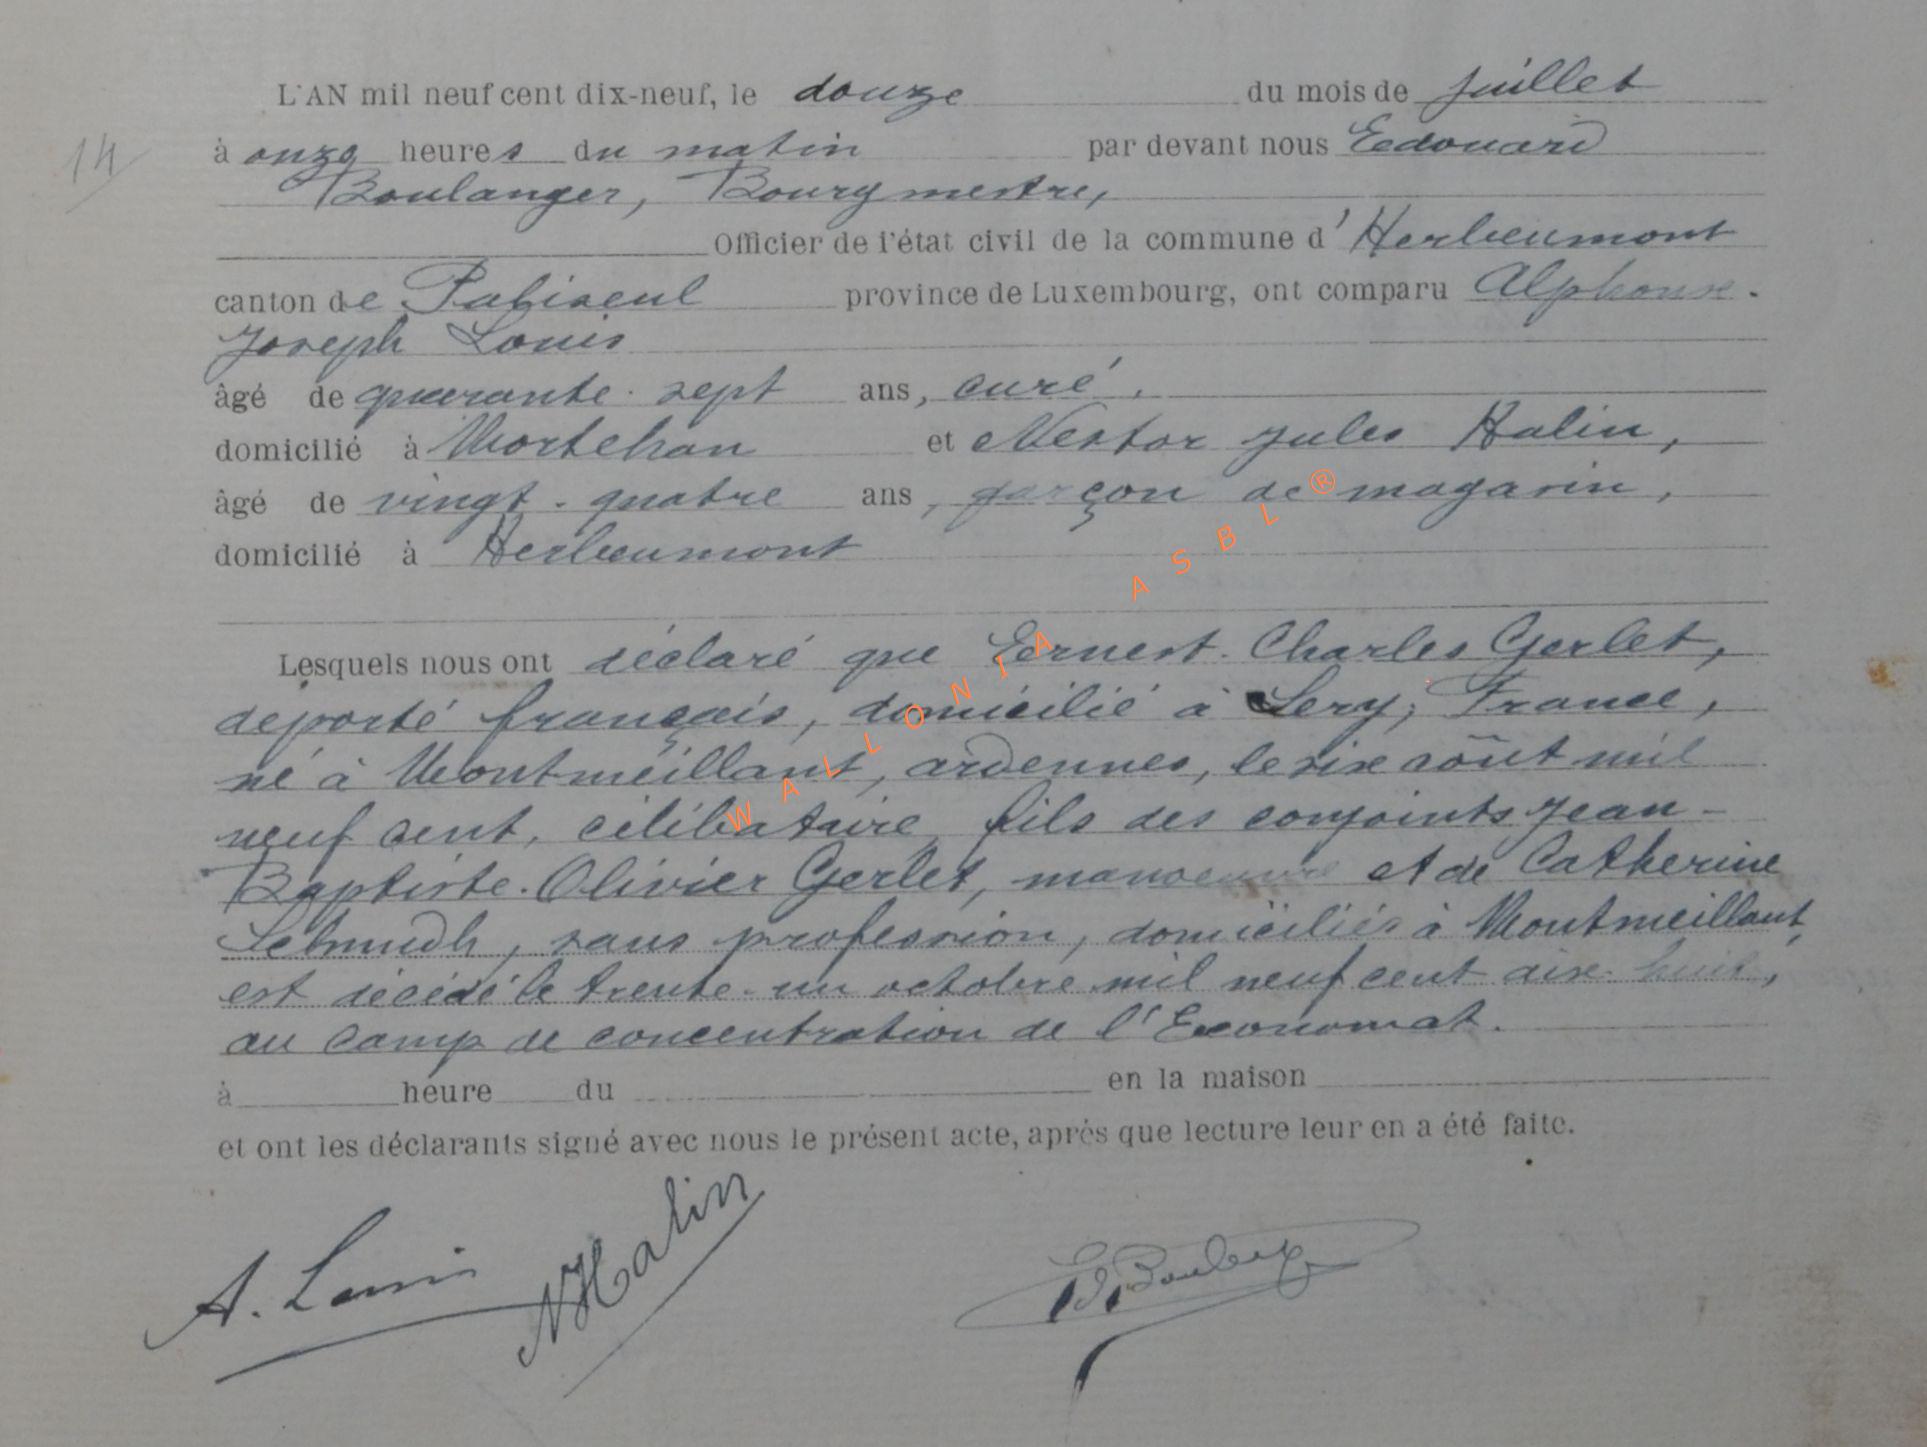 L'AN mil neuf cent dix-neuf, le douze du mois de juillet
14
à onze heures du matin par devant nous Edouard
Boulanger, Bourgmestre,
Officier de l'état civil de la commune d'Herbeumont
canton de Paliseul province de Luxembourg, ont comparu Alphonse-
Joseph Louis
âgé de quarante-sept ans, curé,
domicilié à Mortehan et Nestor Jules Halin,
âgé de vingt-quatre ans, garçon de magasin,
domicilié à Herbeumont
Lesquels nous ont déclaré que Ernest-Charles Gerlet,
déporté français, domicilié à Sery, France,
né à Montmeillant, ardennes, le six août mil
neuf cent, célibataire, fils des conjoints Jean-
Baptiste-Olivier Gerlet, manoeuvre et de Catherine
Schmidh, sans profession, domiciliés à Montmeillant,
est décédé le trente-un octobre mil neuf cent dix-huit,
au camp de concentration de l'Economat.
à heure du en la maison
et ont les déclarants signé avec nous le présent acte, après que lecture leur en a été faite.
A. Louis NHalin
WALLONIA ASBL ®